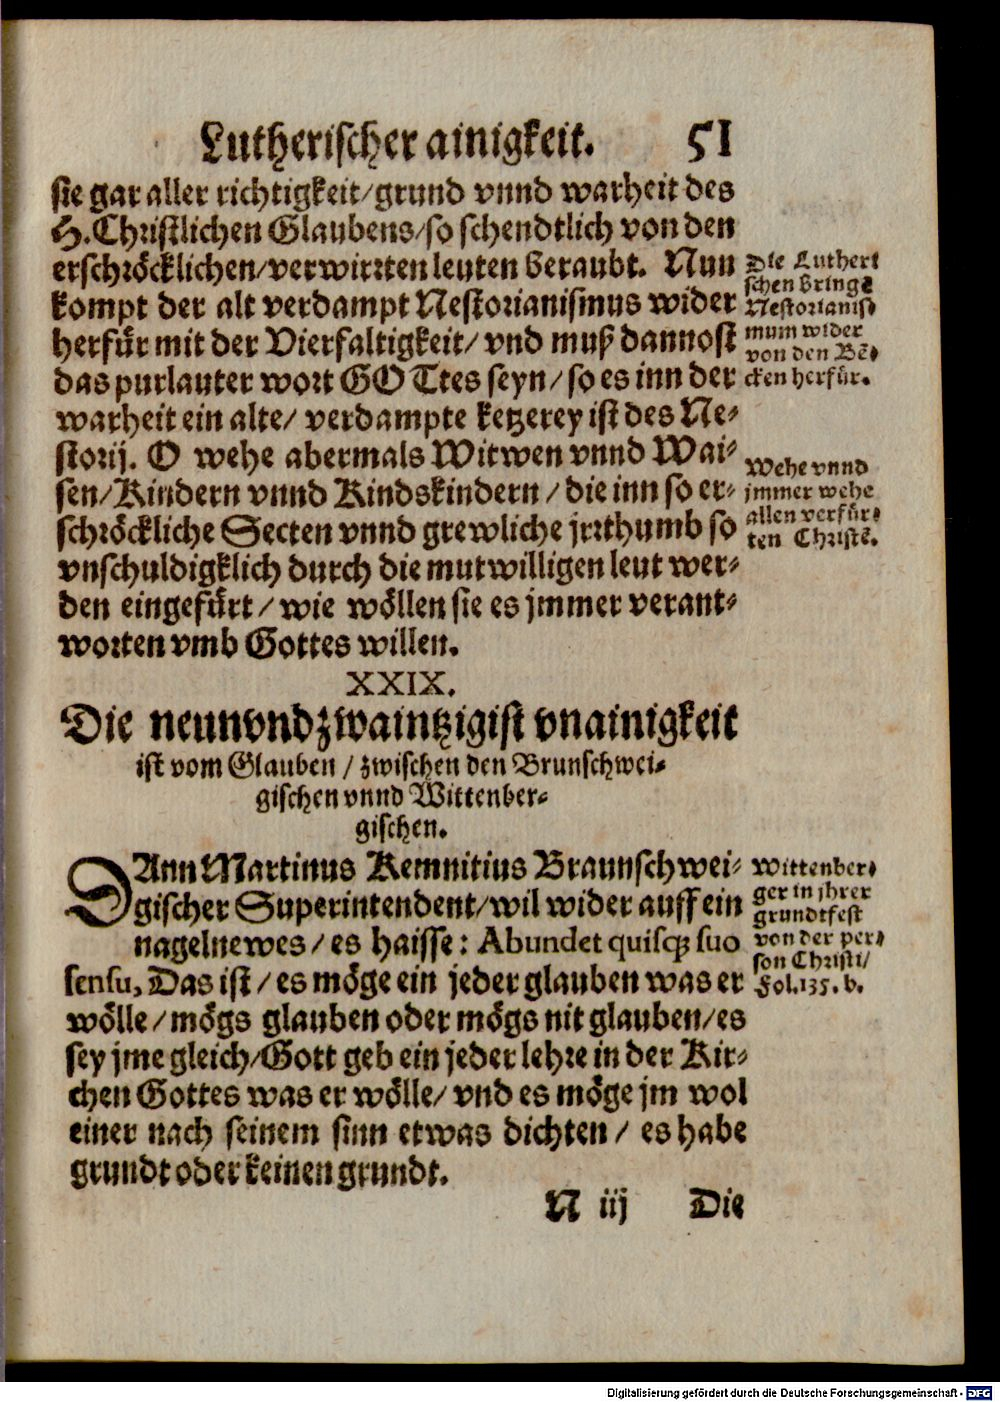 Lutherischer ainigkeit. 51
sie gar aller richtigkeit/grund vnnd warheit des
H. Christlichen Glaubens/so schendtlich von den
erschröcklichen/verwirrten leuten beraubt. Nun
kompt der alt verdampt Nestorianismus wider
herfür mit der Vierfaltigkeit/ vnd muß dannost
das purlauter wort GOTtes seyn/ so es inn der
warheit ein alte/ verdampte ketzerey ist des Ne-
storij. O wehe abermals Witwen vnnd Wai-
sen/Kindern vnnd Kindskindern/ die inn so er-
schröckliche Secten vnnd grewliche jrrthumb so
vnschuldigklich durch die mutwilligen leut wer-
den eingefürt/ wie wöllen sie es jmmer verant-
worten vmb Gottes willen.
Die Lutheri
schen bringē
Nestorianis-
mum wider
von den Bē-
cken herfür.
Wehe vnnd
jmmer wehe
allen verfür-
ten Christē.
XXIX.
Die neunvndzwaintzigist vnainigkeit
ist vom Glauben/ zwischen den Brunschwei-
gischen vnnd Wittenber-
gischen.
DAnn Martinus Kemnitius Braunschwei-
gischer Superintendent/wil wider auff ein
nagelnewes/ es haisse: Abundet quisq; suo
sensu, Das ist/ es möge ein jeder glauben was er
wölle/mögs glauben oder mögs nit glauben/es
sey jme gleich/Gott geb ein jeder lehre in der Kir-
chen Gottes was er wölle/ vnd es möge jm wol
einer nach seinem sinn etwas dichten/ es habe
grundt oder keinen grundt.
Wittenber-
ger in jhrer
grundtfest
von der per-
son Christi/
Fol.135.b.
N iij Die
Digitalisierung gefördert durch die Deutsche Forschungsgemeinschaft - DFG